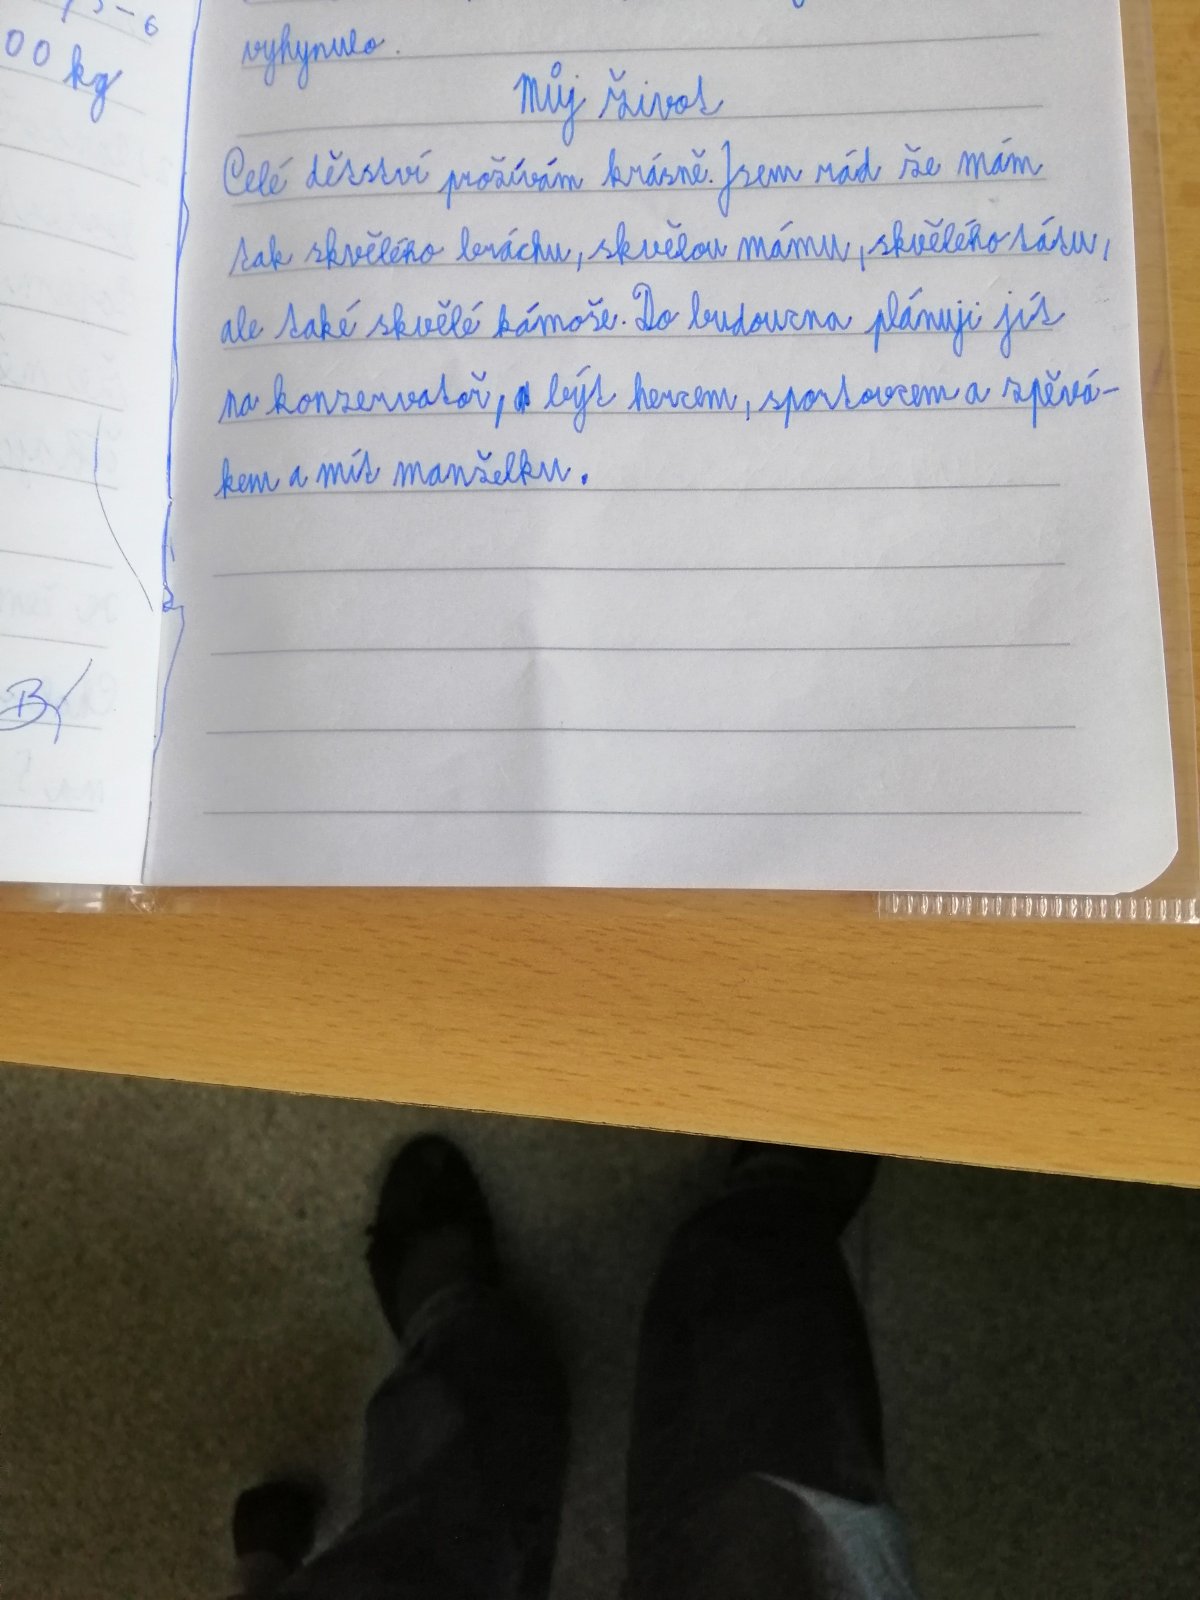 00 kg
vyhynulo.
Můj život
Celé dětství prožívám krásně. Jsem rád že mám
tak skvělého bráchu, skvělou mámu, skvělého tátu,
ale také skvělé kámoše. Do budoucna plánuji jít
na konzervatoř, být hercem, sportovcem a zpěvá-
kem a mít manželku.